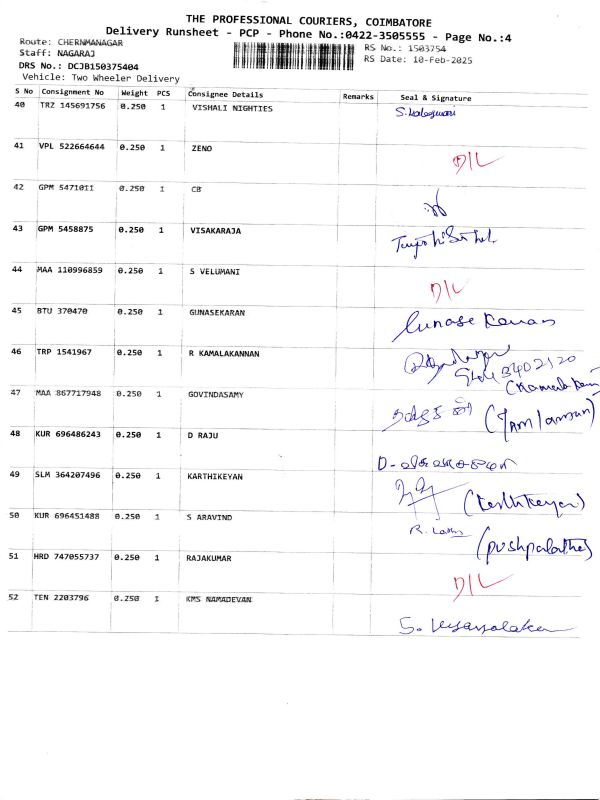 THE PROFESSIONAL COURIERS, COIMBATORE
Delivery Runsheet - PCP - Phone No.:0422-3505555 - Page No.:4
Route: CHERNMANAGAR
Staff: NAGARAJ
RS No.: 1503754
DRS No.: DCJB150375404
RS Date: 10-Feb-2025
Vehicle: Two Wheeler Delivery
S No Consignment No Weight PCS Consignee Details Remarks Seal & Signature
40 TRZ 145691756 0.250 1 VISHALI NIGHTIES
41 VPL 522664644 0.250 1 ZENO D/L
42 GPM 5471011 0.250 1 CB
43 GPM 5458875 0.250 1 VISAKARAJA
44 MAA 110996859 0.250 1 S VELUMANI D/L
45 BTU 370470 0.250 1 GUNASEKARAN Gunasekaran
46 TRP 1541967 0.250 1 R KAMALAKANNAN
47 MAA 867717948 0.250 1 GOVINDASAMY
48 KUR 696486243 0.250 1 D RAJU
49 SLM 364207496 0.250 1 KARTHIKEYAN
50 KUR 696451488 0.250 1 S ARAVIND (pushpalatha)
51 HRD 747055737 0.250 1 RAJAKUMAR D/L
52 TEN 2203796 0.250 1 KMS NAMADEVAN